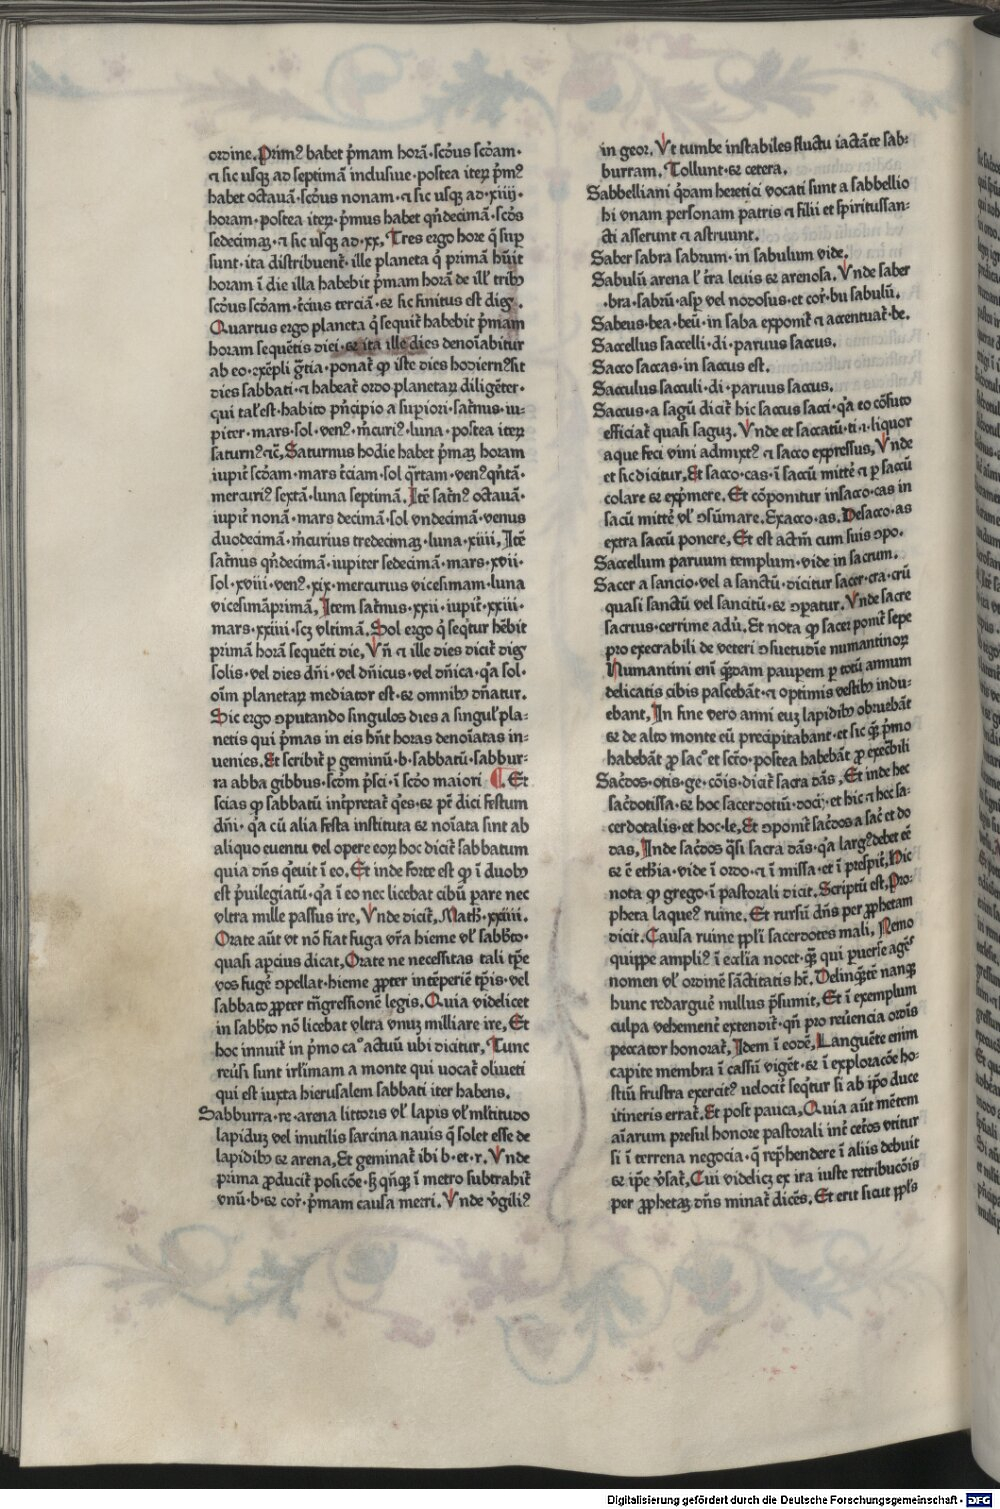 ordine. Primꝰ habet p̃mam horã· scd̃us scd̃am·
⁊ sic usqꝫ ad septimã inclusiue· postea iteꝝ p̃mꝰ
habet octauã· scd̃us nonam· ⁊ sic usqꝫ ad· xiiij·
horam· postea iteꝝ· p̃mus habet qñdecimã· scd̃s
sedecimaꝫ· ⁊ sic usqꝫ ad· xx, Tres ergo hore q̃ sup
sunt· ita distribuent̃· ille planeta q̃ primã hũit
horam ĩ die illa habebit p̃mam horã de ill̃ tribꝫ
scd̃us scd̃am· t̃cius terciã· ⁊ sic finitus est dies.
Quartus ergo planeta q̃ sequit̃ habebit p̃mam
horam sequẽtis diei· ⁊ ita ille dies denoĩabitur
ab eo· exẽpli gr̃tia· ponat̃ ꝙ iste dies hodiernꝰ sit
dies sabbati· ⁊ habeat̃ ordo planetaꝝ diligẽter·
qui tal̃ est· habito pñcipio a supiori· sat̃nus· iu-
piter· mars· sol· venꝰ· m̃curiꝰ· luna· postea iteꝝ
saturnꝰ ⁊c̃, Saturnus hodie habet p̃maꝫ horam
iupit̃ scd̃am· mars t̃ciam· sol q̃rtam· venꝰ qñtã·
mercuriꝰ sextã· luna septimã. Itẽ sat̃nꝰ octauã·
iupit̃ nonã· mars decimã· sol vndecimã· venus
duodecimã· m̃curius tredecimaꝫ· luna· xiiii, Itẽ
sat̃nus qñdecimã· iupiter sedecimã· mars· xvii·
sol· xviii· venꝰ· xix· mercurus vicesimam· luna
vicesimãprimã, Item sat̃nus· xxii· iupit̃· xxiii·
mars· xxiiii· scꝫ vltimã. Sol ergo q̃ seq̃tur hẽbit
primã horã sequẽti die, Vñ ⁊ ille dies dicit̃ dies
solis· vel dies dñi· vel dñicus· vel dñica· q̃a sol·
oĩm planetaꝝ mediator est· ⁊ omnibꝫ dñatur.
Sic ergo ꝯputando singulos dies a singul̃ pla-
netis qui p̃mas in eis hñt horas denoĩatas in-
uenies. Et scribit̃ p geminũ· b· sabbatũ· sabbur-
ra abba gibbus· scd̃m p̃sci· ĩ scd̃o maiori ¶. Et
scias ꝙ sabbatũ int̃pretat̃ q̃es· ⁊ pẽ dici festum
dñi· q̃a cũ alia festa instituta ⁊ noĩata sint ab
aliquo euentu vel opere eoꝝ hoc dicit̃ sabbatum
quia dñs q̃euit ĩ eo. Et inde forte est ꝙ ĩ duobꝫ
est p̃uilegiatũ· q̃a ĩ eo nec licebat cibũ pare nec
vltra mille passus ire, Vnde dicit̃, Math̃· xxiiii.
Orate aũt vt nõ fiat fuga vr̃a hieme vl̃ sabb̃to·
quasi apcius dicat, Orate ne necessitas tali tp̃e
vos fugẽ ꝯpellat· hieme ꝓpter intẽperiẽ tp̃is· vel
sabbato ꝓpter tñgressionẽ legis. Quia videlicet
in sabb̃to nõ licebat vltra vnuꝫ milliare ire, Et
hoc innuit̃ in p̃mo caº actuũ ubi dicitur, Tunc
reũsi sunt irl̃imam a monte qui uocat̃ oliueti
qui est iuxta hierusalem sabbati iter habens.
Sabburra· re· arena littoris vl̃ lapis vl̃ ml̃titudo
lapiduꝫ vel inutilis sarcina nauis q̃ solet esse de
lapidibꝫ ⁊ arena, Et geminat̃ ibi b· et· r. Vnde
prima ꝓducit̃ posicõe· sꝫ qñqꝫ ĩ metro subtrahit̃
vnũ· b· ⁊ cor̃· p̃mam causa metri. Vnde v̓giliꝰ
in geor. Vt tumbe instabiles fluctu iactãte sab-
burram. Tollunt· ⁊ cetera.
Sabbelliani q̃dam heretici vocati sunt a sabbellio
hi vnam personam patris ⁊ filii et spiritussan-
cti asserunt ⁊ astruunt.
Saber sabra sabrum· in sabulum vide.
Sabulũ arena l̃ t̃ra leuis ⁊ arenosa. Vnde saber
·bra· sabrũ· asp vel nodosus· et cor̃· bu sabulũ.
Sabeus· bea· beũ· in saba exponit̃ ⁊ accentuat̃· be.
Saccellus saccelli· di· paruus saccus.
Sacco saccas· in saccus est.
Sacculus sacculi· di· paruus saccus.
Saccus· a sagũ dicit̃ hic saccus sacci· q̃a eo cõsuto
efficiat̃ quasi saguꝫ. Vnde et saccatũ· ti· ⁊· liquor
aque feci vini admixtꝰ ⁊ sacco expressus, Vnde
et sic dicitur, Et sacco· cas· ĩ saccũ mittẽ ⁊ p saccũ
colare ⁊ exp̃mere. Et cõponitur insacco· cas in
sacũ mittẽ vl̃ ꝯsũmare. Exacco· as. Desacco· as
extra saccũ ponere, Et est actm̃ cum suis ꝯpo.
Saccellum paruum templum· vide in sacrum.
Sacer a sancio· vel a sanctũ· dicitur sacer· cra· crũ
quasi sanctũ vel sancitũ· ⁊ ꝯpatur. Vnde sacre
sacrius· cerrime adũ. Et nota ꝙ sacer ponit̃ sepe
pro execrabili de veteri ꝯsuetudĩe numantinoꝝ
Numantini eni̅ q̃ndam paupem p totũ annum
delicatis cibis pascebãt· ⁊ optimis vestibꝫ indu-
ebant, In fine vero anni euꝫ lapidibꝫ obruebãt
⁊ de alto monte eũ precipitabant· et sic q̃ p̃mo
habebãt ꝓ sacº et scr̃o· postea habebãt ꝓ execr̃bili
Sacd̃os· otis· ge· cõis· dicit̃ sacra dãs, Et inde hec
sacd̃otissa· ⁊ hoc sacerdotiũ· docij· et hic ⁊ hec sa-
cerdotalis· et hoc· le, Et ꝯponit̃ sacd̃os a sac̃ et do
das, Inde sacd̃os q̃si sacra dãs· q̃a largꝰ debet eẽ
⁊ ẽ eth̃ia· vide ĩ ordo· ⁊ ĩ missa· et ĩ prespit̃, Hic
nota ꝙ grego· ĩ pastorali dicit. Scriptũ est, Pro-
pheta laqueꝰ ruine. Et rursũ dñs per ꝓphetam
dicit. Causa ruine ppl̃i sacerdotes mali, Nemo
quippe ampliꝰ ĩ eccl̃ia nocet· qꝫ qui puerse agẽs
nomen vl̃ ordinẽ sãctitatis hẽt. Delinq̃tẽ nanqꝫ
hunc redarguẽ nullus p̃sumit, Et ĩ exemplum
culpa vehement̃ extendit̃· qñ pro reũencia ordĩs
peccator honorat̃, Idem ĩ eodẽ, Languẽte enim
capite membra ĩ cassũ vigẽt· ⁊ ĩ exploracõe ho-
stiũ frustra exercitꝰ uelocit̃ seq̃tur si ab ip̃o duce
itineris errat̃. Et post pauca, Quia aũt mẽtem
aĩarum presul honore pastorali int̃ cet̃os vtitur
si ĩ terrena negocia· q̃ rep̃hendere ĩ aliis debuit
⁊ ip̃e v̓sat̃, Cui videlicꝫ ex ira iuste retribucõis
per ꝓphetaꝫ dñs minat̃ dicẽs. Et erit sicut ppl̃s
Digitalisierung gefördert durch die Deutsche Forschungsgemeinschaft - DFG